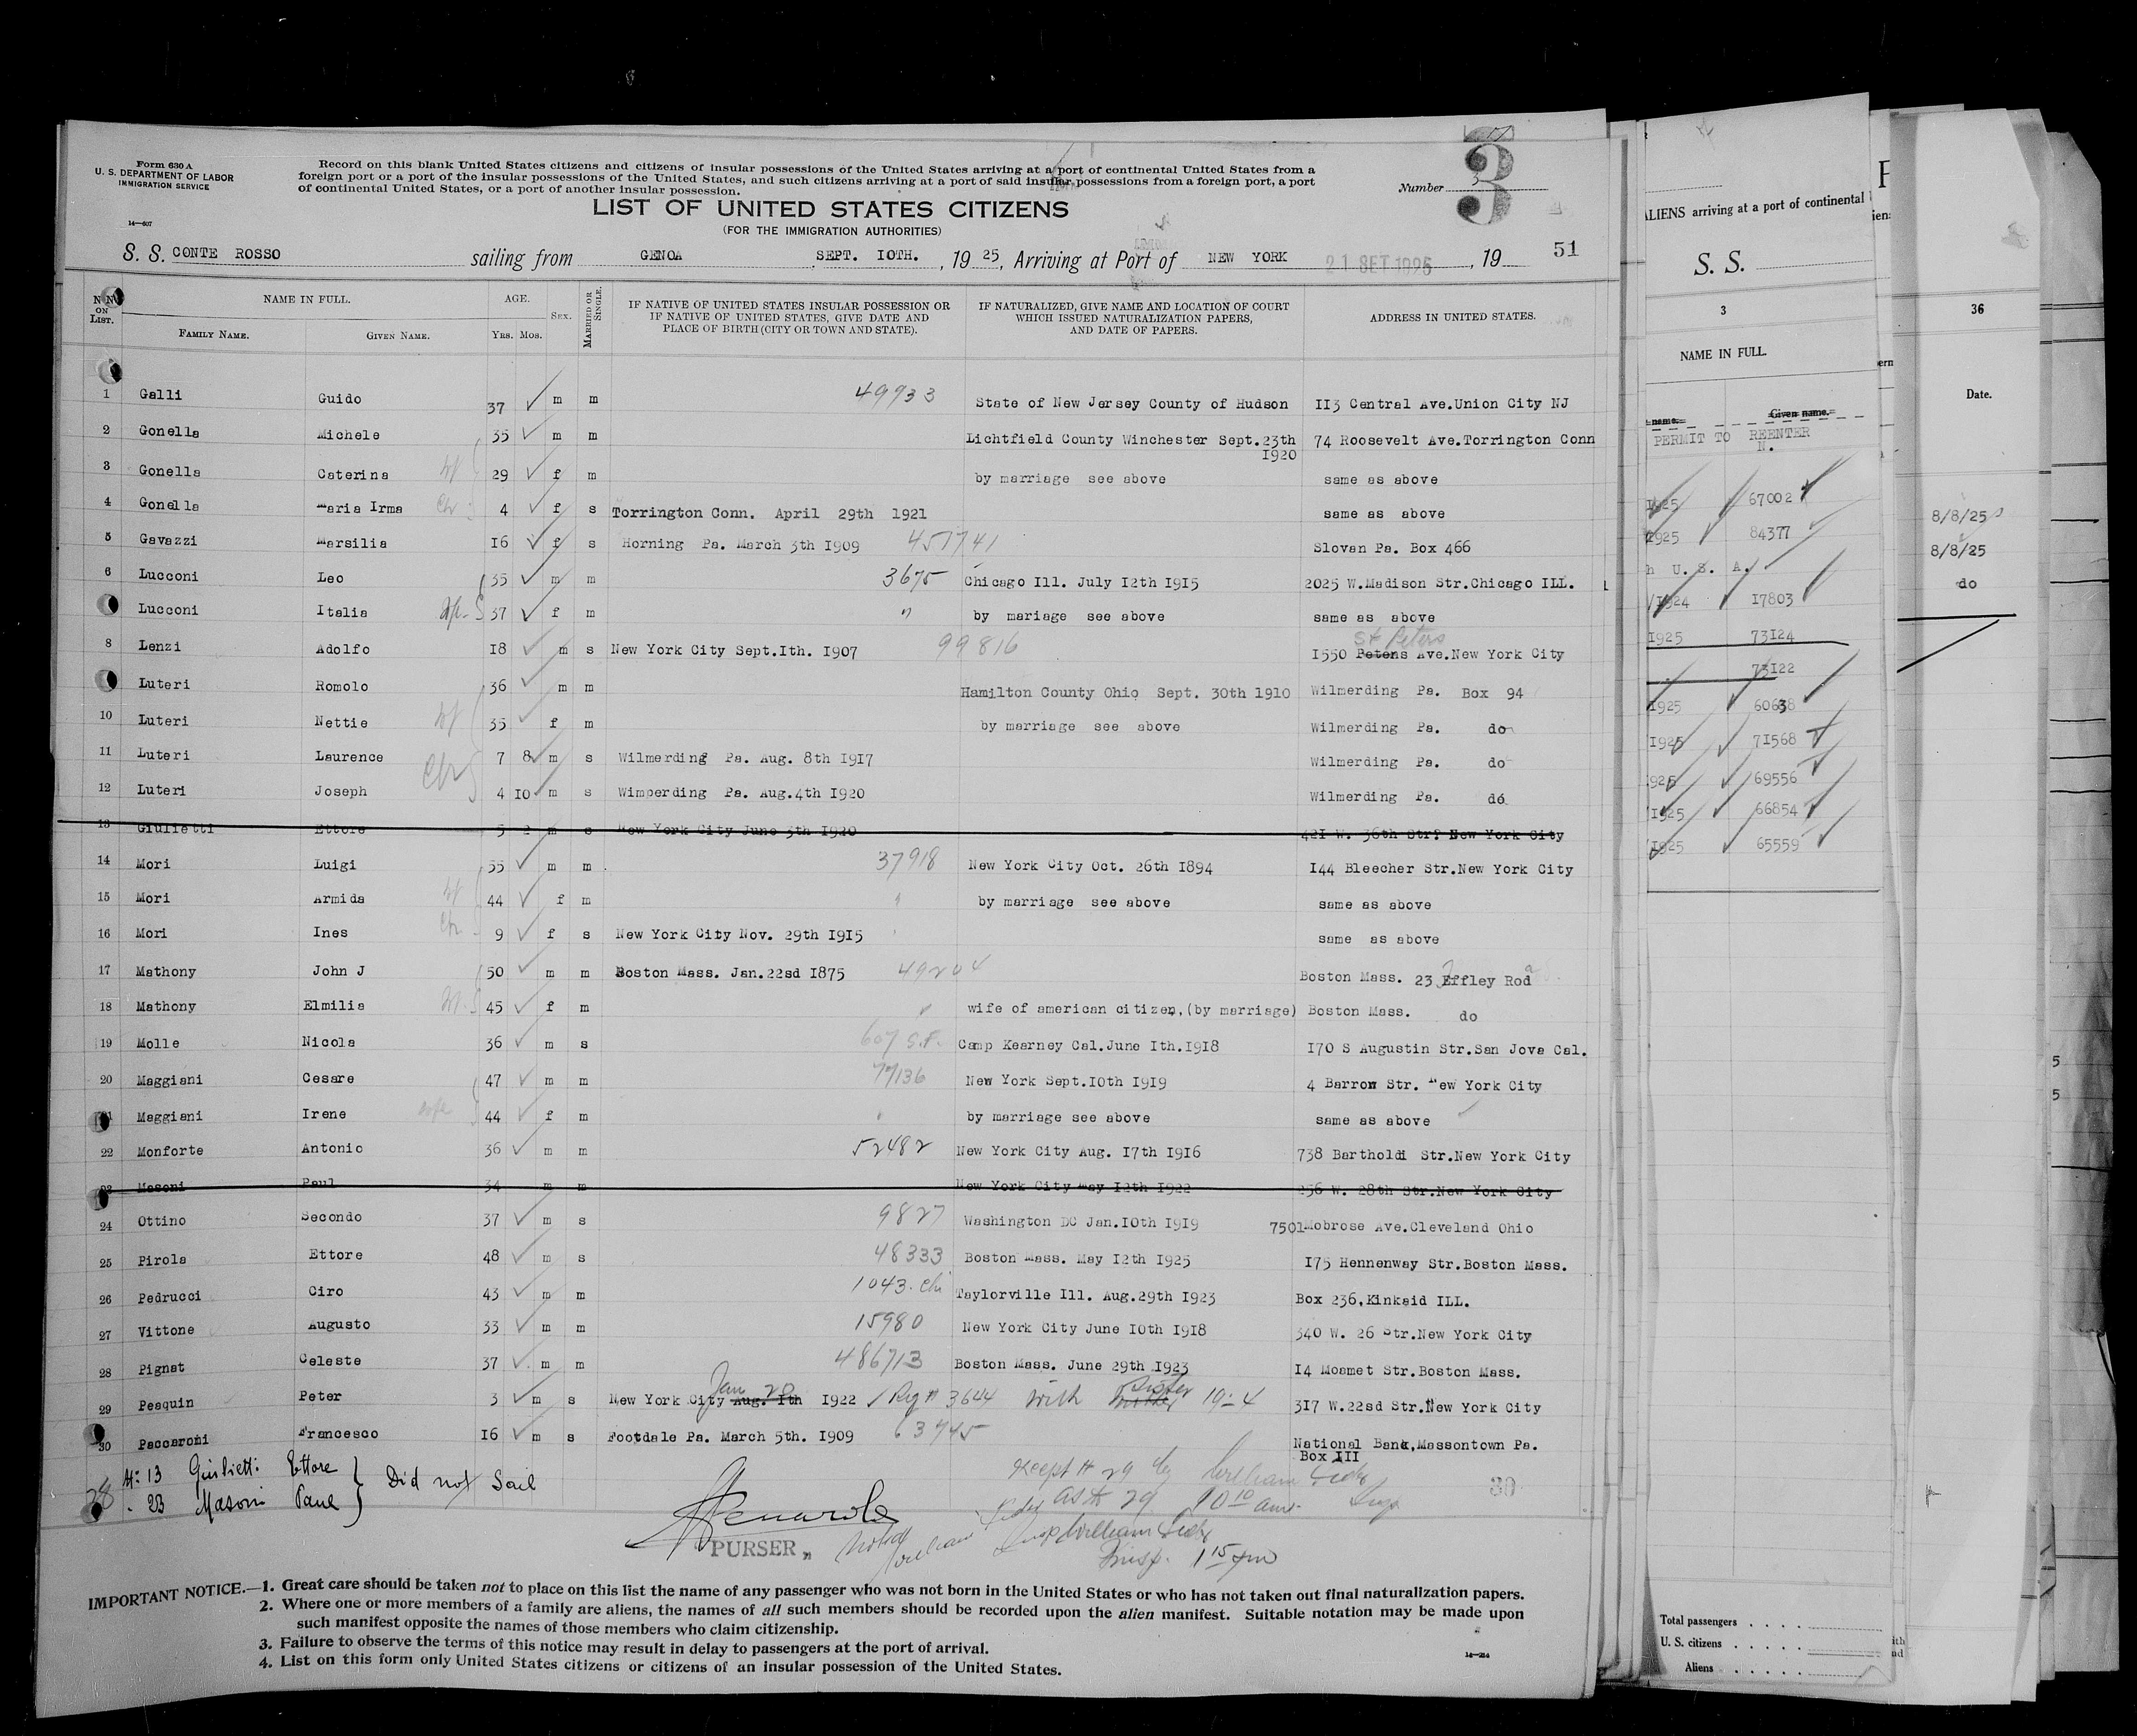 Form 630 A
U. S. DEPARTMENT OF LABOR
IMMIGRATION SERVICE
14—607
Record on this blank United States citizens and citizens of insular possessions of the United States arriving at a port of continental United States from a
foreign port or a port of the insular possessions of the United States, and such citizens arriving at a port of said insular possessions from a foreign port, a port
of continental United States, or a port of another insular possession.
Number 3
3
LIST OF UNITED STATES CITIZENS
(FOR THE IMMIGRATION AUTHORITIES)
S. S. CONTE ROSSO sailing from GENOA, SEPT. IOTH., 19 25, Arriving at Port of NEW YORK 21 SET 1925, 19 51
No. ON LIST. NAME IN FULL. FAMILY NAME. GIVEN NAME. AGE. YRS. MOS. SEX. MARRIED OR SINGLE. IF NATIVE OF UNITED STATES INSULAR POSSESSION OR IF NATIVE OF UNITED STATES, GIVE DATE AND PLACE OF BIRTH (CITY OR TOWN AND STATE). IF NATURALIZED, GIVE NAME AND LOCATION OF COURT WHICH ISSUED NATURALIZATION PAPERS, AND DATE OF PAPERS. ADDRESS IN UNITED STATES.
1 Galli Guido 37 m m 49933 State of New Jersey County of Hudson II3 Central Ave.Union City NJ
2 Gonella Michele 35 m m Lichtfield County Winchester Sept.23th 1920 74 Roosevelt Ave.Torrington Conn
3 Gonella Caterina wf 29 f m by marriage see above same as above
4 Gonella Maria Irma Ch 4 f s Torrington Conn. April 29th 1921 same as above
5 Gavazzi Marsilia I6 f s Horning Pa. March 3th I909 451741 Slovan Pa. Box 466
6 Lucconi Leo 35 m m 3675 Chicago Ill. July I2th I915 2025 W.Madison Str.Chicago ILL.
Lucconi Italia wf 37 f m " by mariage see above same as above
8 Lenzi Adolfo I8 m s New York City Sept.Ith. I907 99816 I550 Petens St Peters Ave.New York City
Luteri Romolo 36 m m Hamilton County Ohio Sept. 30th I910 Wilmerding Pa. Box 94
10 Luteri Nettie wf 35 f m by marriage see above Wilmerding Pa. do
11 Luteri Laurence Ch 7 8 m s Wilmerding Pa. Aug. 8th I917 Wilmerding Pa. do
12 Luteri Joseph 4 IO m s Wimperding Pa. Aug.4th I920 Wilmerding Pa. do
13 Giulietti Ettore 5 2 m s New York City June 3th I920 421 W. 36th Str. New York City
14 Mori Luigi 55 m m 37918 New York City Oct. 26th I894 I44 Bleecher Str.New York City
15 Mori Armida wf 44 f m by marriage see above same as above
16 Mori Ines Ch 9 f s New York City Nov. 29th I9I5 same as above
17 Mathony John J 50 m m Boston Mass. Jan.22sd I875 49204 Boston Mass. 23 Effley Rod
18 Mathony Elmilia wf 45 f m wife of american citizen,(by marriage) Boston Mass. do
19 Molle Nicola 36 m s 607 S.F. Camp Kearney Cal.June Ith.I9I8 I70 S Augustin Str.San Jova Cal.
20 Maggiani Cesare 47 m m 77136 New York Sept.IOth I9I9 4 Barrow Str. New York City
21 Maggiani Irene wife 44 f m by marriage see above same as above
22 Monforte Antonio 36 m m 52482 New York City Aug. I7th I9I6 738 Bartholdi Str.New York City
23 Masoni Paul 34 m m New York City May I2th I922 256 W. 28th Str.New York City
24 Ottino Secondo 37 m s 9827 Washington DC Jan.IOth I9I9 750I Mobrose Ave.Cleveland Ohio
25 Pirola Ettore 48 m s 48333 Boston Mass. May I2th I925 I75 Hennenway Str.Boston Mass.
26 Pedrucci Ciro 43 m m 1043. Chi Taylorville Ill. Aug.29th I923 Box 236,Kinkaid ILL.
27 Vittone Augusto 33 m m 15980 New York City June IOth I9I8 340 W. 26 Str.New York City
28 Pignat Celeste 37 m m 486713 Boston Mass. June 29th I923 I4 Moamet Str.Boston Mass.
29 Peaquin Peter 3 m s New York City Aug. Ith Jan 20 I922 Reg # 3644 with mother Sister 19-4 317 W.22sd Str.New York City
30 Paccaroni Francesco I6 m s Footdale Pa. March 5th. I909 63745 National Bank,Massontown Pa. Box III
N: 13 Giulietti Ettore } Did not Sail
" 23 Masoni Paul
28
30
PURSER
IMPORTANT NOTICE.—1. Great care should be taken not to place on this list the name of any passenger who was not born in the United States or who has not taken out final naturalization papers.
2. Where one or more members of a family are aliens, the names of all such members should be recorded upon the alien manifest. Suitable notation may be made upon
such manifest opposite the names of those members who claim citizenship.
3. Failure to observe the terms of this notice may result in delay to passengers at the port of arrival.
4. List on this form only United States citizens or citizens of an insular possession of the United States.
14—214
ALIENS arriving at a port of continental
S. S.
3
NAME IN FULL.
name. Given name.
PERMIT TO REENTER
N.
1925 67002
1925 84377
h U. S. A.
/1924 I7803
1925 73124
73122
1925 60638
1925 71568
925 69556
1925 66854
1925 65559
Total passengers
U. S. citizens
Aliens
36
Date.
8/8/25
8/8/25
do
5
5